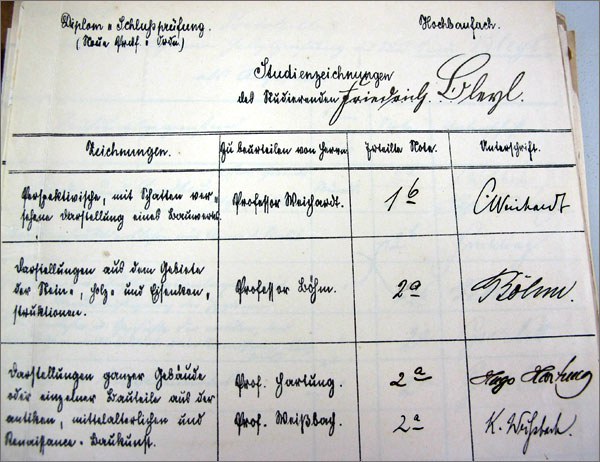 Diplom-Schlußprüfung.
(Neue Prüf.-Ordn.)
Hochbaufach.
Studienzeichnungen
des Studierenden Friedrich Bleyl.
Zeichnungen.
Zu beurteilen von Herrn
Erteilte Note.
Unterschrift.
Perspektivische, mit Schatten ver-
sehene Darstellung eines Bauwerks.
Professor Weichardt.
1b
C. Weichardt
Darstellungen aus dem Gebiete
der Stein-, Holz- und Eisenkon-
struktionen.
Professor Böhm.
2a
Böhm.
Darstellungen ganzer Gebäude
oder einzelner Bauteile aus der
antiken, mittelalterlichen und
Renaissance-Baukunst.
Prof. Hartung.
2a
Hugo Hartung
Prof. Weißbach.
2a
K. Weißbach